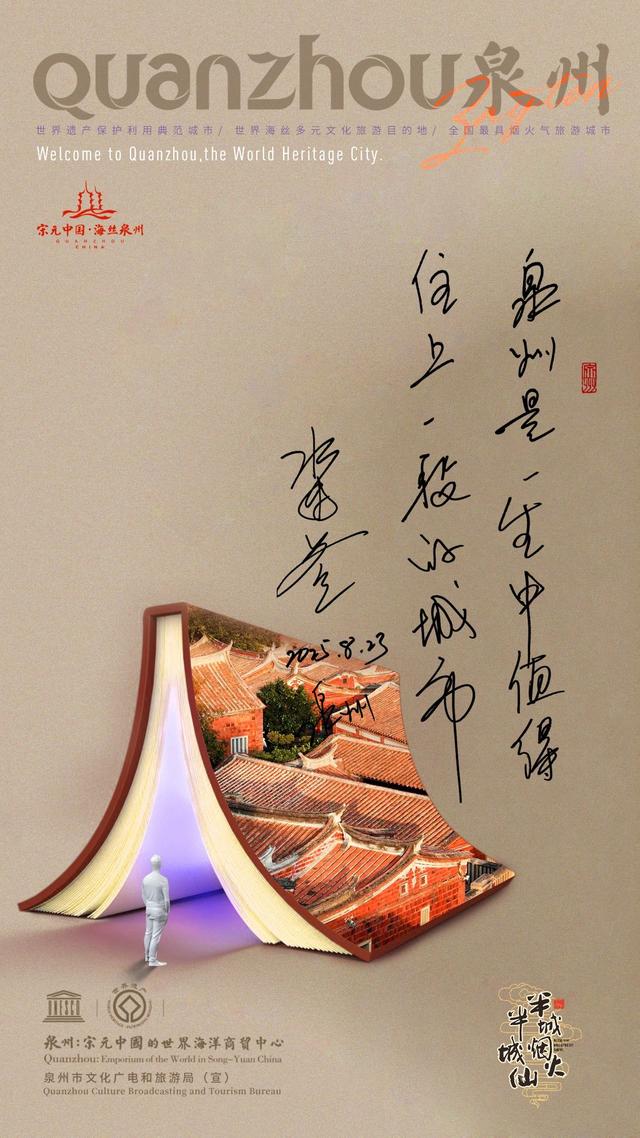 Quanzhou泉州
世界遗产保护利用典范城市/ 世界海丝多元文化旅游目的地/ 全国最具烟火气旅游城市
Welcome to Quanzhou,the World Heritage City.
宋元中国·海丝泉州
QUANZHOU
CHINA
泉州是一生中值得
住上一段的城市
2025.8.23
泉州
UNESCO
世界遗产
泉州:宋元中国的世界海洋商贸中心
Quanzhou: Emporium of the World in Song-Yuan China
泉州市文化广电和旅游局（宣）
Quanzhou Culture Broadcasting and Tourism Bureau
半城烟火
半城仙